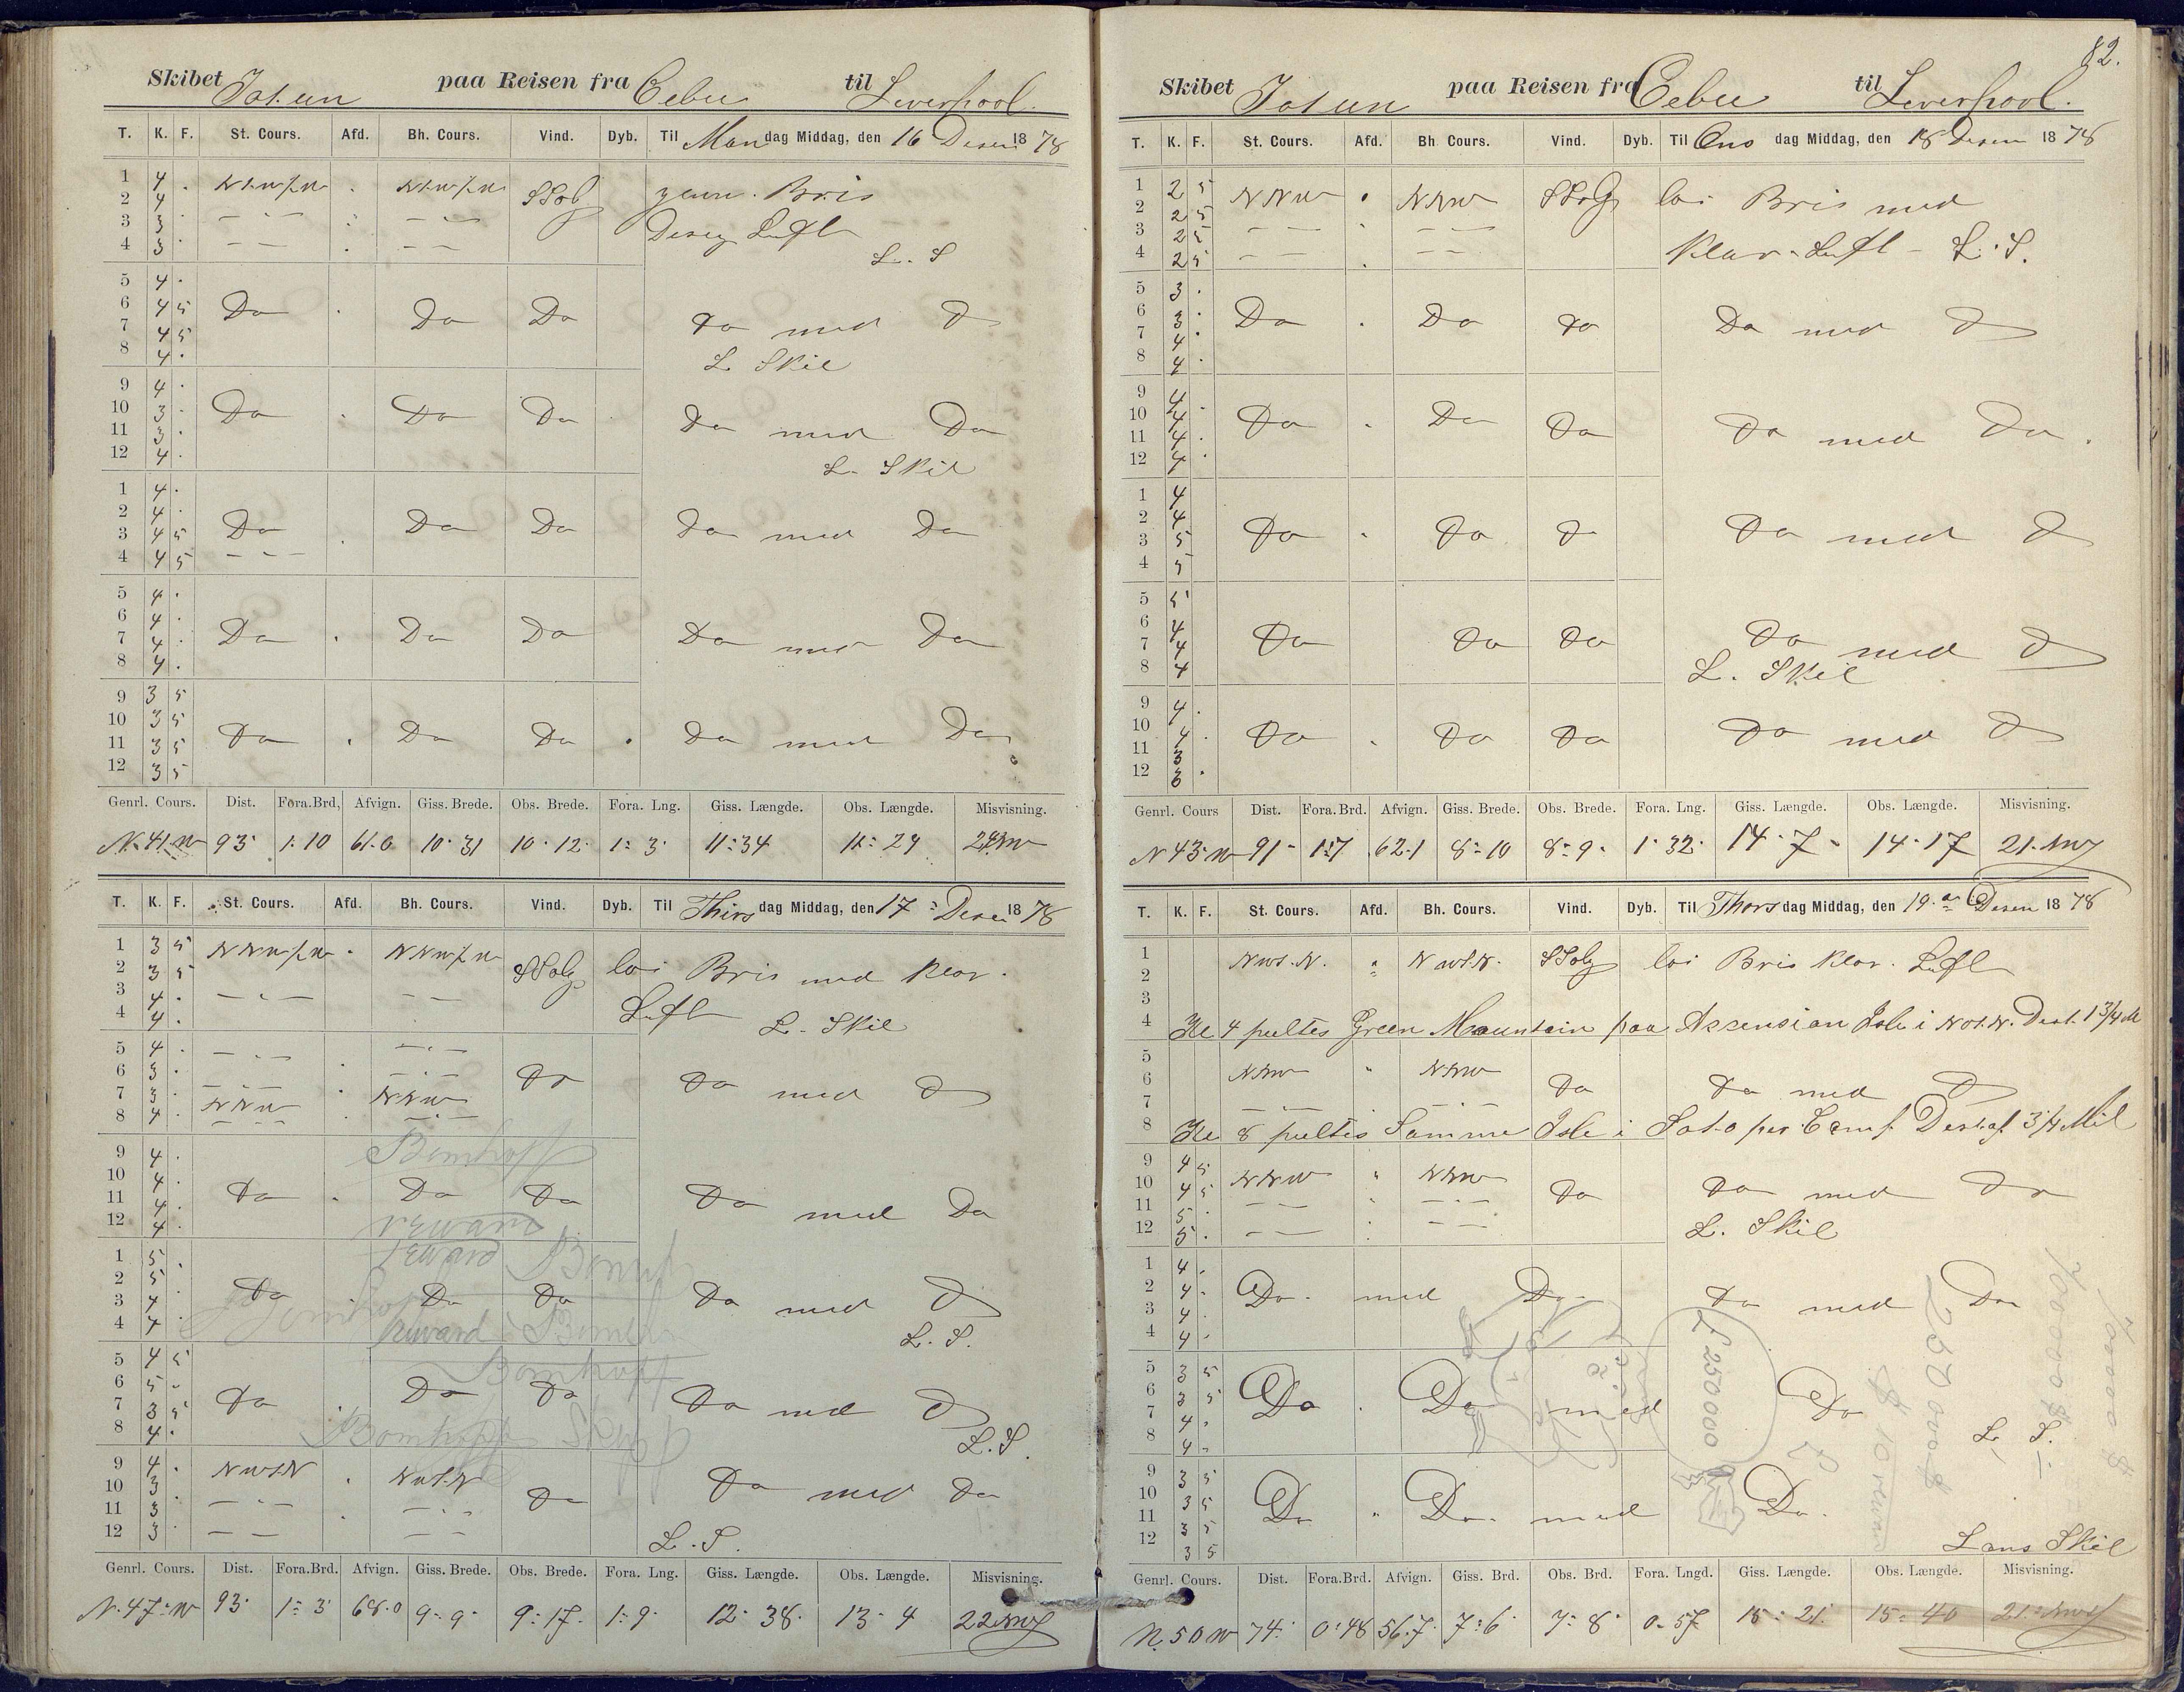 Skibet Jotun paa Reisen fra Cebu til Liverpool.
T. K. F. St. Cours. Afd. Bh. Cours. Vind. Dyb. Til Mandag Middag, den 16 Desem 1878
1 4 . SSOlg Bris
2 4
3 3 Luft
4 3 L. S
5 4
6 4 5 Do Do Do Do med D
7 4 5
8 4 L. Skil
9 4
10 3 Do Do Do Do med Do
11 3
12 4 L. Skil
1 4
2 4
3 4 5 Do Do Do Do med Do
4 4 5
5 4
6 4
7 4 Do Do Do Do med Do
8 4
9 3 5
10 3 5
11 3 5 Do Do Do Do med Do
12 3 5
Genrl. Cours. Dist. Fora.Brd, Afvign. Giss. Brede. Obs. Brede. Fora. Lng. Giss. Længde. Obs. Længde. Misvisning.
N. 41. W 93 1: 10 61.0 10. 31 10. 12. 1: 3. 11: 34 11: 29
T. K. F. St. Cours. Afd. Bh. Cours. Vind. Dyb. Til Thirsdag Middag, den 17 Desem 1878
1 3 5 SSOlg loi Bris med klar.
2 3 5
3 4 Luft L. Skil
4 4
5 4
6 3 Do Do med D
7 3 NNW NNW
8 4
Bomhoff
9 4
10 4
11 4 Do Do Do Do med Do
12 4
reward
reward
1 5
2 5
3 4 Do Do Do Do med D
4 4 L. S.
reward
Bomhoff
5 4 5
6 5
7 3 5 Do Do Do Do med D
8 4 L. S.
Bomhoff
9 4 NWt.N NWt.N
10 3 Do Do med Do
11 3
12 3 L. S.
Genrl. Cours. Dist. Fora.Brd. Afvign. Giss. Brede. Obs. Brede. Fora. Lng. Giss. Længde. Obs. Længde. Misvisning.
N. 47: W 93 1: 3 68.0 9: 9 9: 17. 1: 9. 12. 38. 13. 4 22
82.
Skibet Jotun paa Reisen fra Cebu til Liverpool.
T. K. F. St. Cours. Afd. Bh. Cours. Vind. Dyb. Til Onsdag Middag, den 18 Desem 1878
1 2 5 NNW NNW SSOlg loi Bris med
2 2 5
3 2 5
4 2 5 Klar Luft L. S.
5 3
6 3 Do Do Do Do med D
7 4
8 4
9 4
10 4 Do Do Do Do med Do.
11 4
12 4
1 4
2 4
3 5 Do Do D Do med D
4 5
5 5
6 4
7 4 Do Do Do Do med D
8 4 L. Skil
9 4
10 4
11 3 Do Do Do Do med D
12 3
Genrl. Cours Dist. Fora.Brd. Afvign. Giss. Brede. Obs. Brede. Fora. Lng. Giss. Længde. Obs. Længde. Misvisning.
N 43. W 91 1:7 62.1 8: 10 8: 9. 1: 32. 14. 7. 14. 17 21.
T. K. F. St. Cours. Afd. Bh. Cours. Vind. Dyb. Til Thorsdag Middag, den 19. Desem 1878
1 NWt.N. NWt.N. SSOlg loi Bris klar. Luft
2
3
4 Kl 4 peiltes Green Mountain paa Assension Isle i NOt.N. Dest. 1 3/4 M
5
6 NNW NNW Do Do med D
7
8 Kl 8 peiltes Samme Isle i per Comp. Dest. af 3/4 Mil
9 4 5
10 4 5 NNW NNW Do Do med Do
11 5
12 5 L. Skil
1 4
2 4 Do. med Do Do med Do
3 4
4 4
5 3 5
6 3 5
7 4 Do Do med Do
8 4 L. S.
£ 250000
250000
9 3 5
10 3 5
11 3 5 Do Do. med Do.
12 3 5 Lans Skil
Genrl. Cours. Dist. Fora.Brd. Afvign. Giss. Brd. Obs. Brd. Fora. Lngd. Giss. Længde. Obs. Længde. Misvisning.
N. 50 W 74. 0: 48 56.7. 7: 6 7: 8 0. 57 15: 21. 15: 40 21: